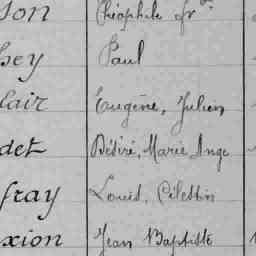 son Théophile Frs
hey Paul
lair Eugène, Julien
det Désiré, Marie Ange
fray Louis, Célestin
xion Jean Baptiste